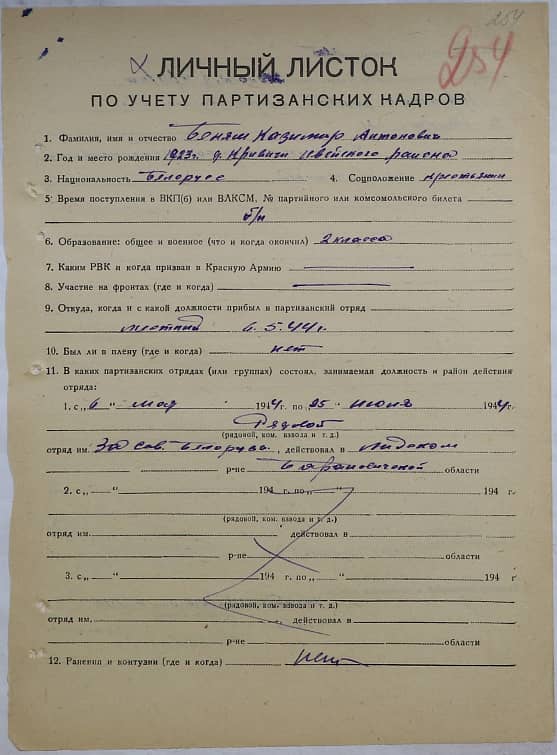 254
254
ЛИЧНЫЙ ЛИСТОК
ПО УЧЕТУ ПАРТИЗАНСКИХ КАДРОВ
1. Фамилия, имя и отчество Беняш Казимир Антонович
2. Год и место рождения 1923г. д. Кривичи Ивейского района
3. Национальность Белорус 4. Соцположение крестьянин
5. Время поступления в ВКП(б) или ВЛКСМ, № партийного или комсомольского билета
б/п
6. Образование: общее и военное (что и когда окончил) 2 класса
7. Каким РВК и когда призван в Красную Армию
8. Участие на фронтах (где и когда)
9. Откуда, когда и с какой должности прибыл в партизанский отряд
местный 6.5.44г.
10. Был ли в плену (где и когда) нет
11. В каких партизанских отрядах (или группах) состоял, занимаемая должность и район действия
отряда:
1. с „6“ мая 1944 г. по „25“ июня 1944г.
Рядовой
(рядовой, ком. взвода и т. д.)
отряд им. За Сов. Белорусь, действовал в Лидском
р-не Барановичской области
2. с „ “ 194 г. по „ “ 194 г.
(рядовой, ком. взвода и т. д.)
отряд им. действовал в
р-не области
3. с „ “ 194 г. по „ “ 194 г
(рядовой, ком. взвода и т. д.)
отряд им. действовал в
р-не области
12. Ранения и контузии (где и когда) нет